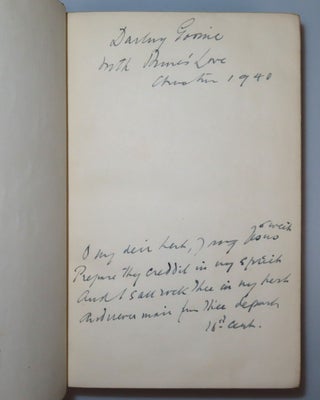 Darling Goosie
With Prune's Love
Christmas 1940
O my deir hert, young Jesus sweit
Prepare thy creddil in my spreit
And I sall rock thee in my hert
And never mair from thee depart
16th cent.